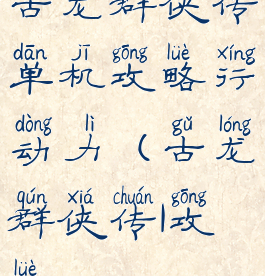 古龙群侠传
dān jī gōng lüè xíng
单机攻略行
dòng lì gǔ lóng
动力(古龙
qún xiá chuán gōng
群侠传|攻
lüè